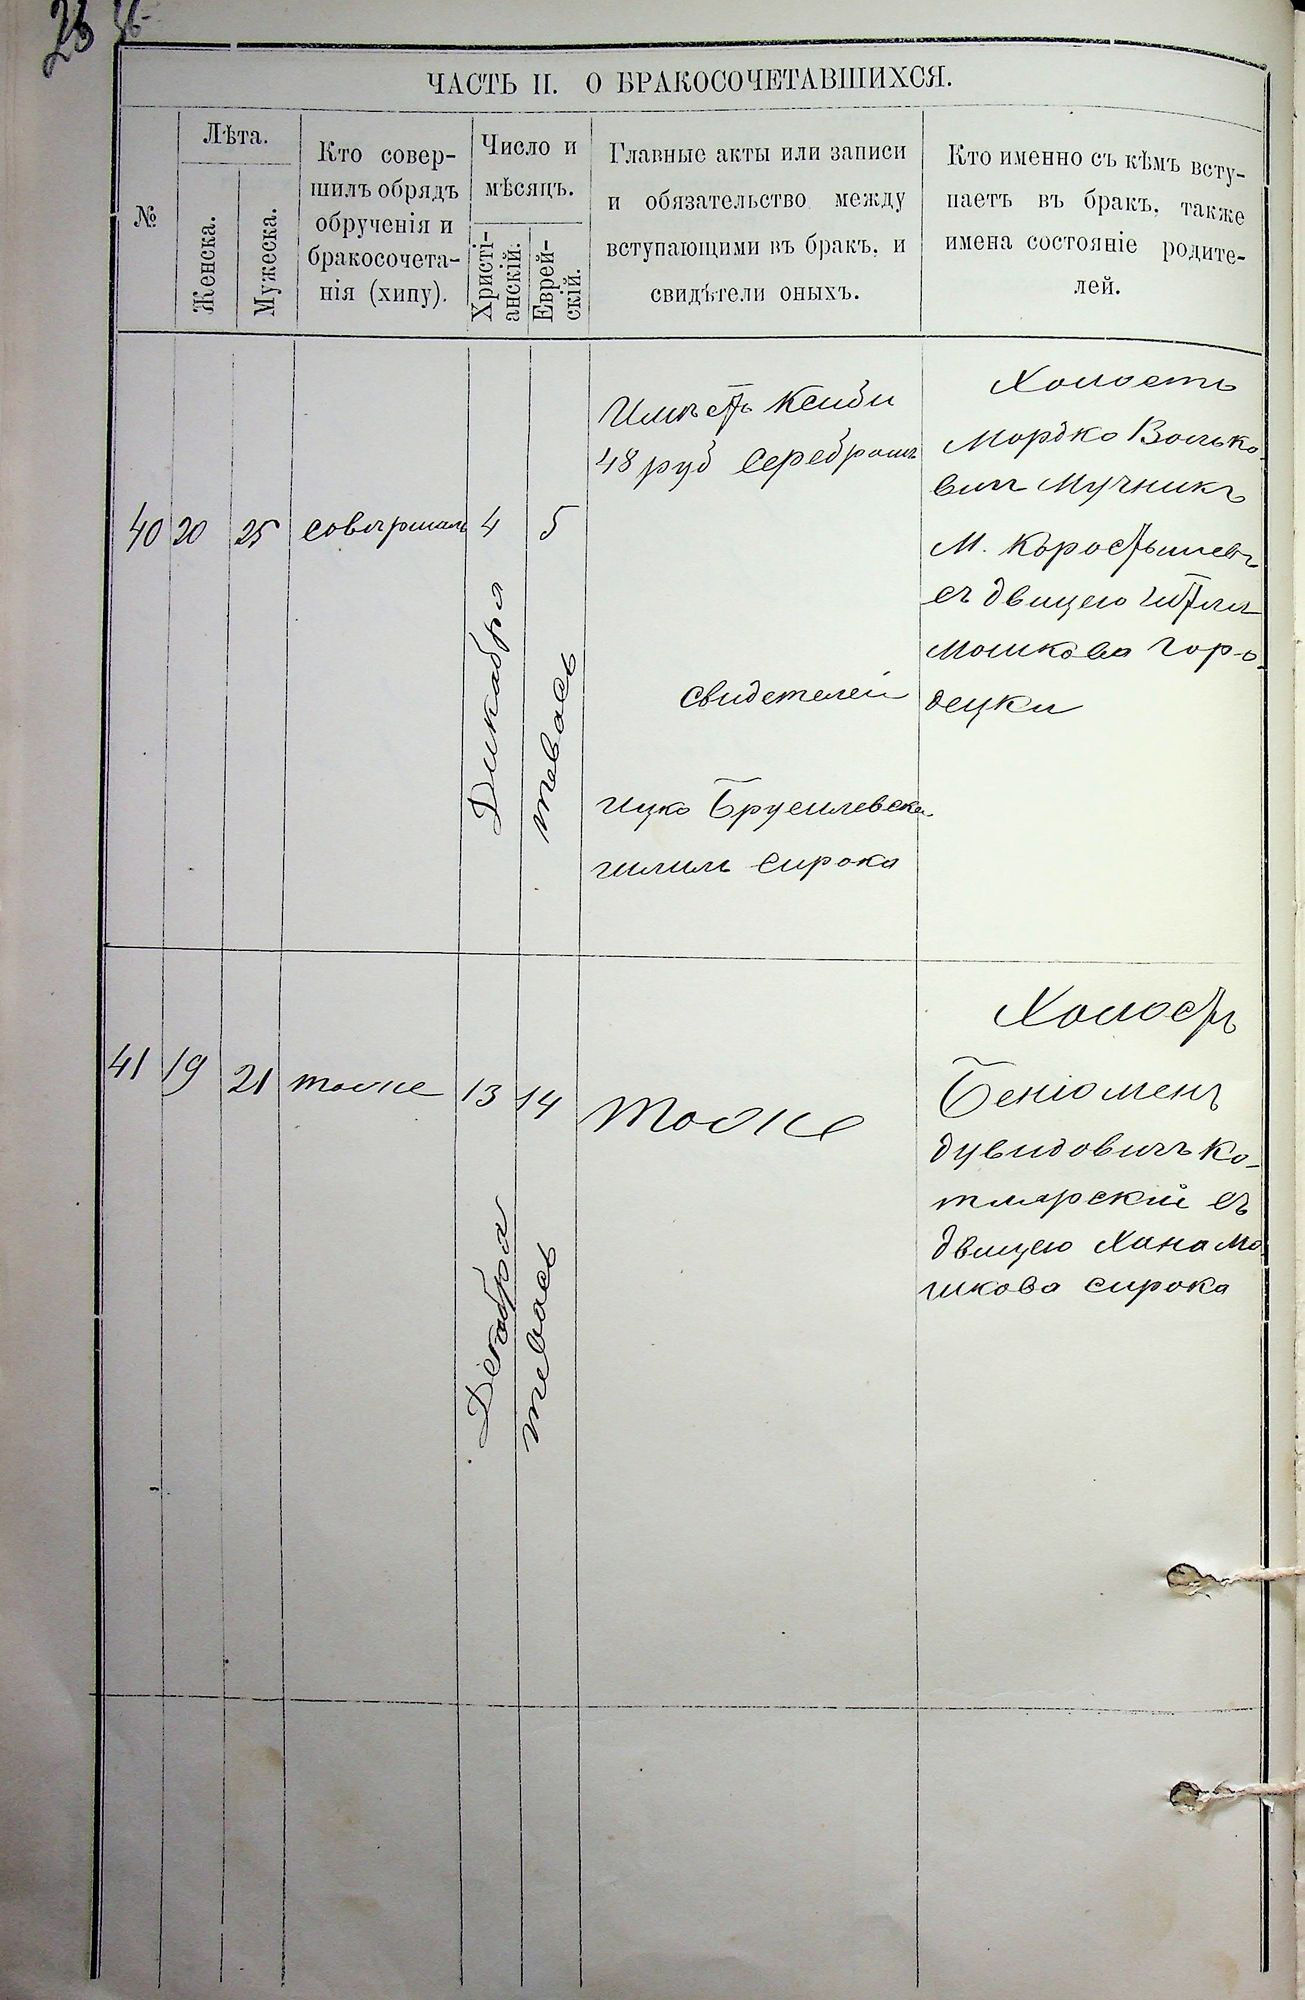 26
ЧАСТЬ II. О БРАКОСОЧЕТАВШИХСЯ.
№
Лѣта.
Женска.
Мужеска.
Кто совер-
шилъ обрядъ
обрученія и
бракосочета-
нія (хипу).
Число и
мѣсяцъ.
Христі-
анскій.
Еврей-
скій.
Главные акты или записи
и обязательство между
вступающими въ бракъ, и
свидѣтели оныхъ.
Кто именно съ кѣмъ всту-
паетъ въ бракъ, также
имена состояніе родите-
лей.
40
20
25
совершалъ
4
Дикабря
5
тевась
48 руб серебромъ
свидетелей
ицко Брусилевска
сирока
Холостъ
Мордко Волько-
вич Мучникъ
М. Коростышевъ
съ двицею
Мошкова Горо-
децки
41
19
21
тоже
13
Декабря
14
тевась
Тоже
Холостъ
Беніоменъ
дувидовичъ Ко-
тлярскій съ
двицею Хана Мо-
шкова сирока